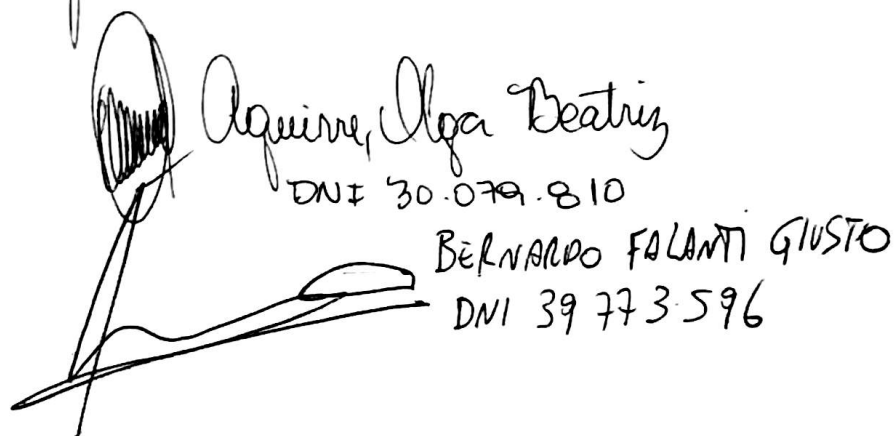 Aguirre, Olga Beatriz
DNI 30.079.810
BERNARDO FALANTI GIUSTO
DNI 39 773.596